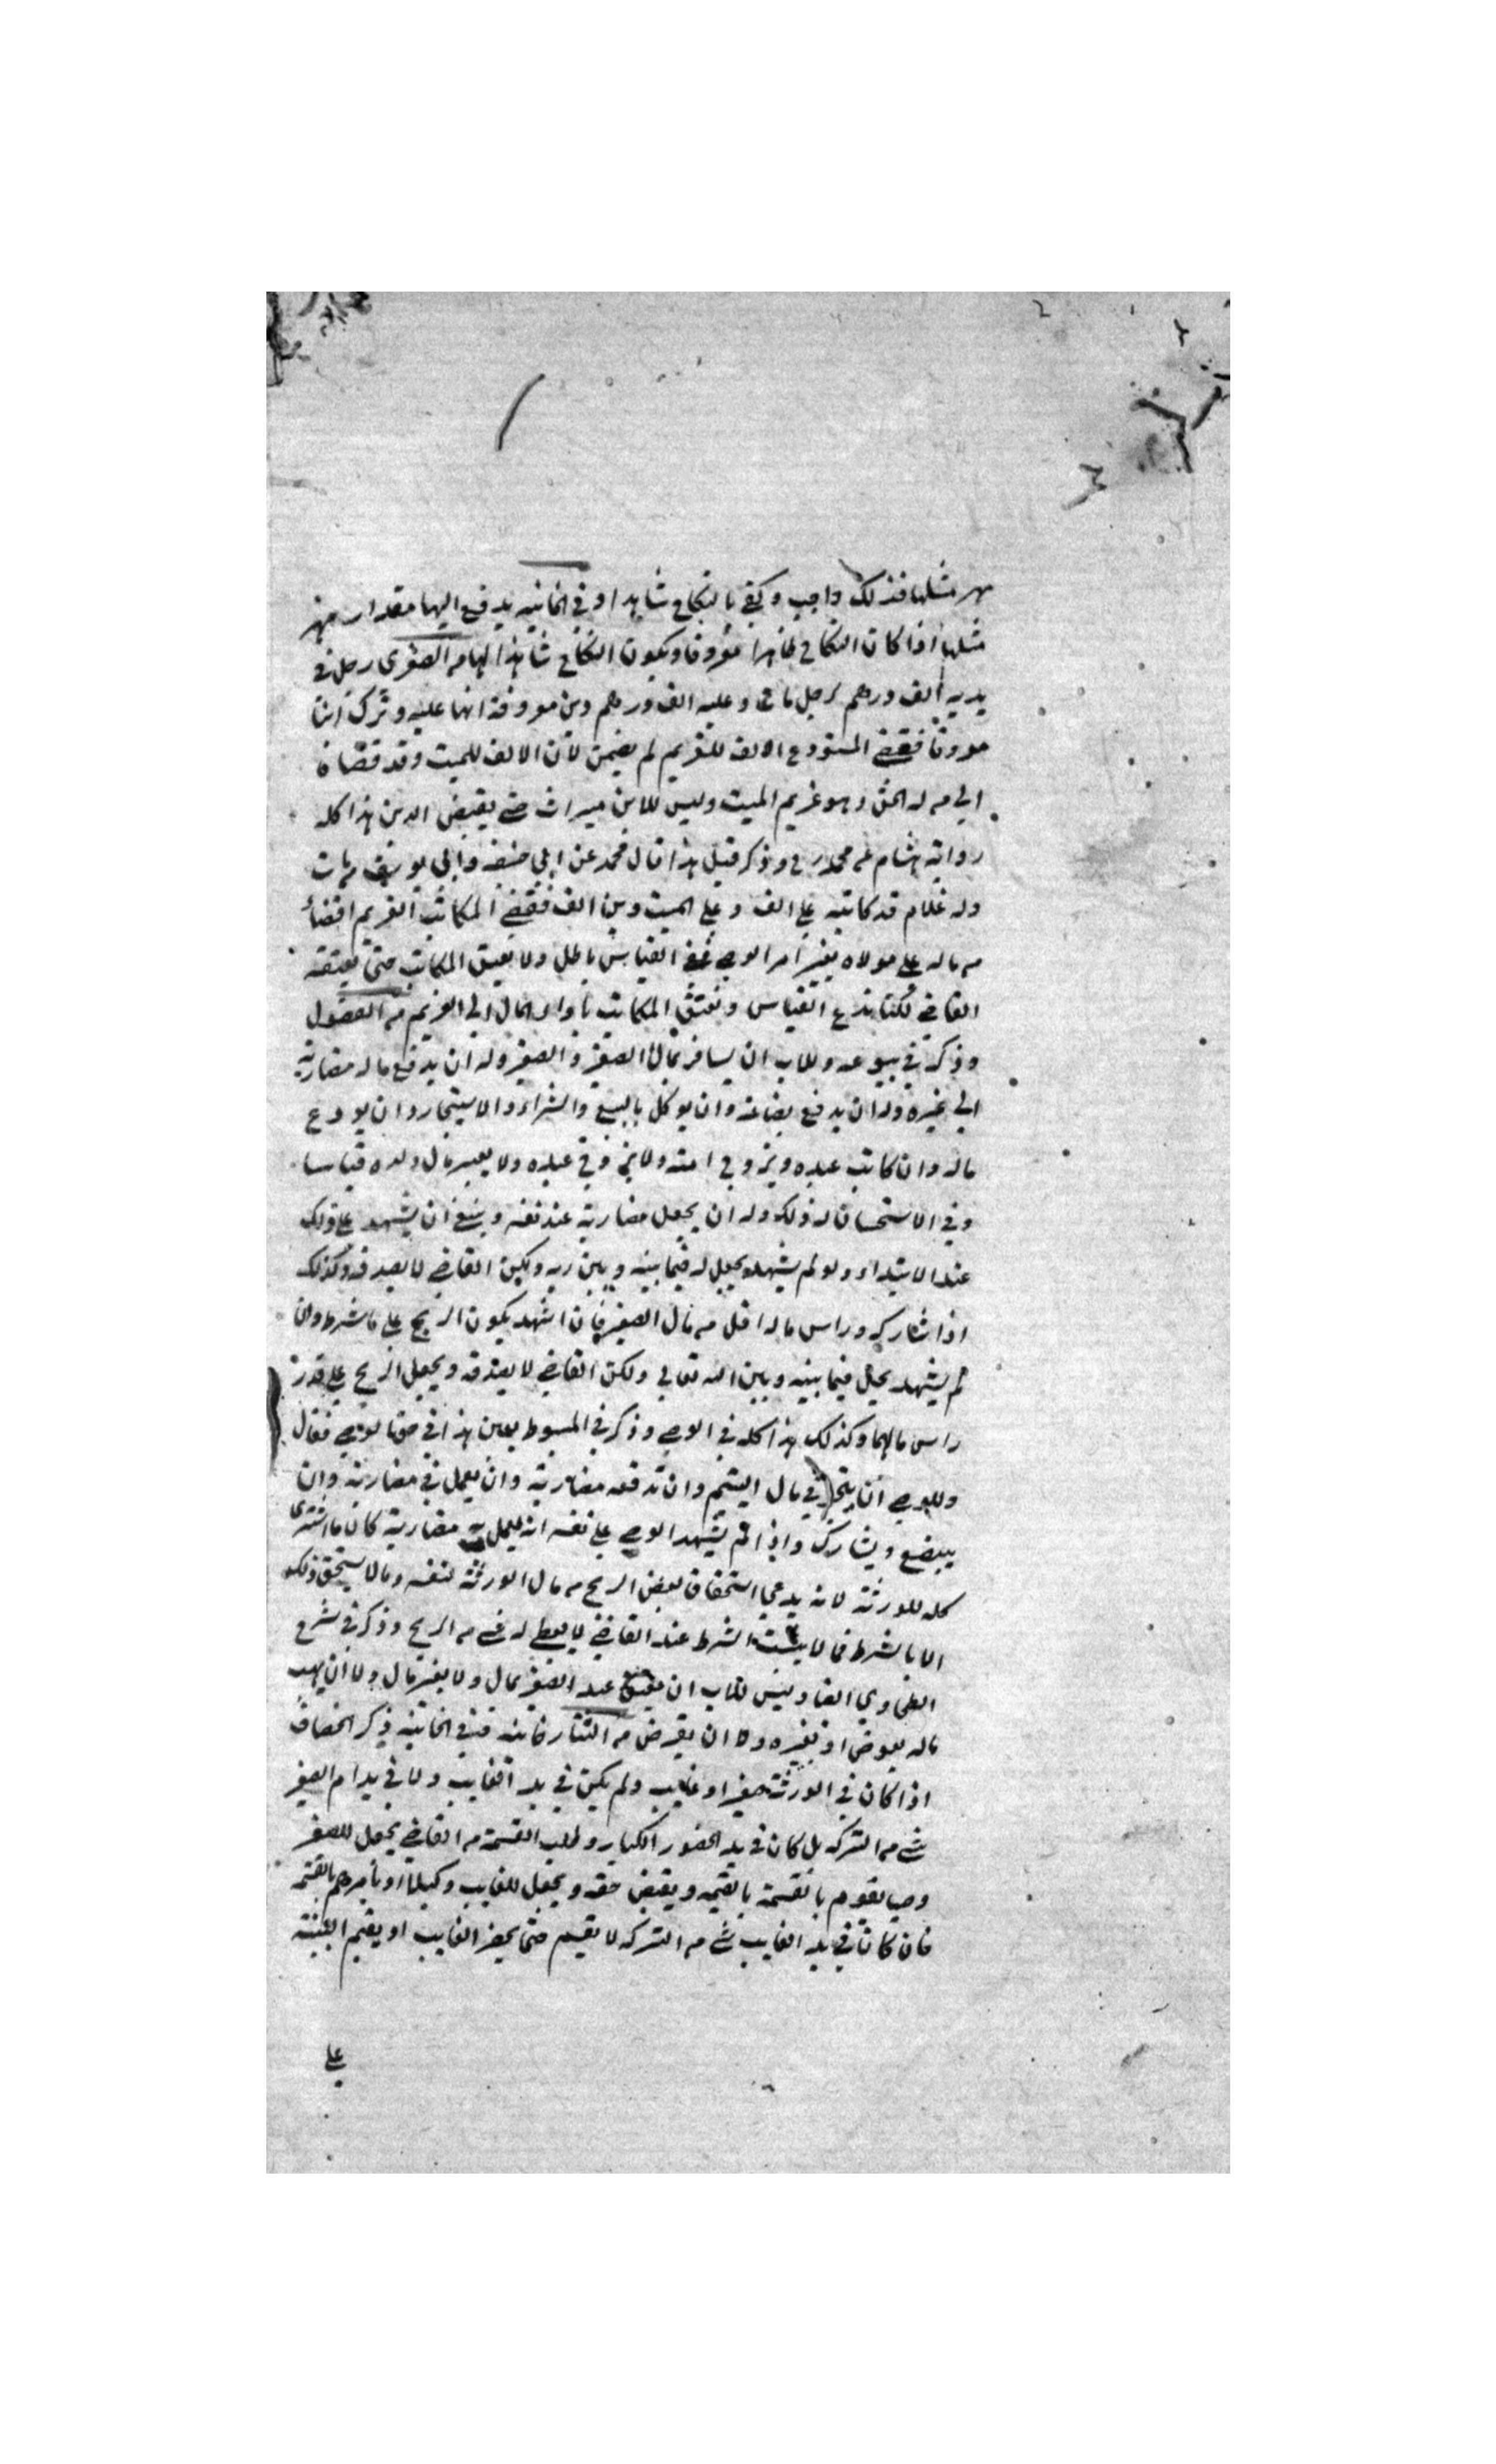 مهر مثلها فذلك واجب وكفى بالنكاح شاهدا وفي الخانيه يدفع اليها مقدار مهر
مثلها اذا كان النكاح ظاهرا معروفا ويكون النكاح شاهدا لها من الصغرى رجل في
يديه الف درهم لرجل مات وعليه الف درهم دين معروفة انها عليه وترك ابنا
معروفا فقضى المستودع الالف للغريم لم يضمن لان الالف للميت وقد قضاه
الي من له الحق وهو غريم الميت وليس للابن ميراث حتى يقبض الدين هذا كله
رواية هشام عن محمد رح وذكر قبل هذا قال محمد عن ابي حنيفه وابي يوسف مات
وله غلام قد كاتبه على الف وعلى الميت دين الف فقضى المكاتب الغريم اقضاء
من ماله على مولاه بغير امر الوصي ففي القياس باطل ولا يعتق المكاتب حتى يعتقه
القاضي لكنا ندع القياس ونعتق المكاتب باداء المال الي الغريم من الفصول
وذكر في بيوعه وللاب ان يسافر بمال الصغير والصغير وله ان يدفع ماله مضاربة
الي غيره وله ان يدفع بضاعة وان يوكل بالبيع والشراء والاستيجار وان يودع
ماله وان كاتب عبده ويزوج امته ولا يزوج عبده ولا يعير مال ولده قياسا
وفي الاستحسان له ذلك وله ان يجعل مضاربة عند نفسه وينبغي ان يشهد على ذلك
عند الابتداء ولو لم يشهد يحل له فيما بينه وبين ربه ولكن القاضي لا يصدقه وكذلك
اذا شاركه وراس ماله اقل من مال الصغير فان اشهد يكون الربح على ما شرط وان
لم يشهد يحل فيما بينه وبين الله تعالي ولكن القاضي لا يصدقه ويجعل الربح على قدر
راس مالهما وكذلك هذا كله في الوصي وذكر في المبسوط بعين هذا في حق الوصي فقال
وللوصي ان يتجر في مال اليتيم وان تدفعه مضاربة وان يعمل في مضاربة وان
يبضع ويشارك واذا لم يشهد الوصي على نفسه انه يعمل به مضاربة كان ما اشترى
كله للورثة لانه يدعي استحقاق بعض الربح من مال الورثة لنفسه وما لا يستحق ذلك
الا بالشرط فما لا يثبت الشرط عند القاضي لا يعطى له شي من الربح وذكر في شرح
الطحاوي ايضا وليس للاب ان يعتق عبد الصغير بمال ولا بغير مال ولا ان يهب
ماله بعوض او بغيره ولا ان يقرض من التتارخانيه قنيه في الخانية ذكر الخصاف
اذا كان في الورثة صغير او غايب ولم يكن في يد الغايب ولا في يد ام الصغير
شي من التركة بل كان في يد الحضور الكبار وطلب القسمة من القاضي يجعل للصغير
وصيا يقوم بالقسمة بالقيمه ويقبض حقه ويجعل للغايب وكيلا او يامرهم بالقسمه
فان كان في يد الغايب شي من التركه لا يقسم حتى يحضر الغايب او يقيم البينة
على